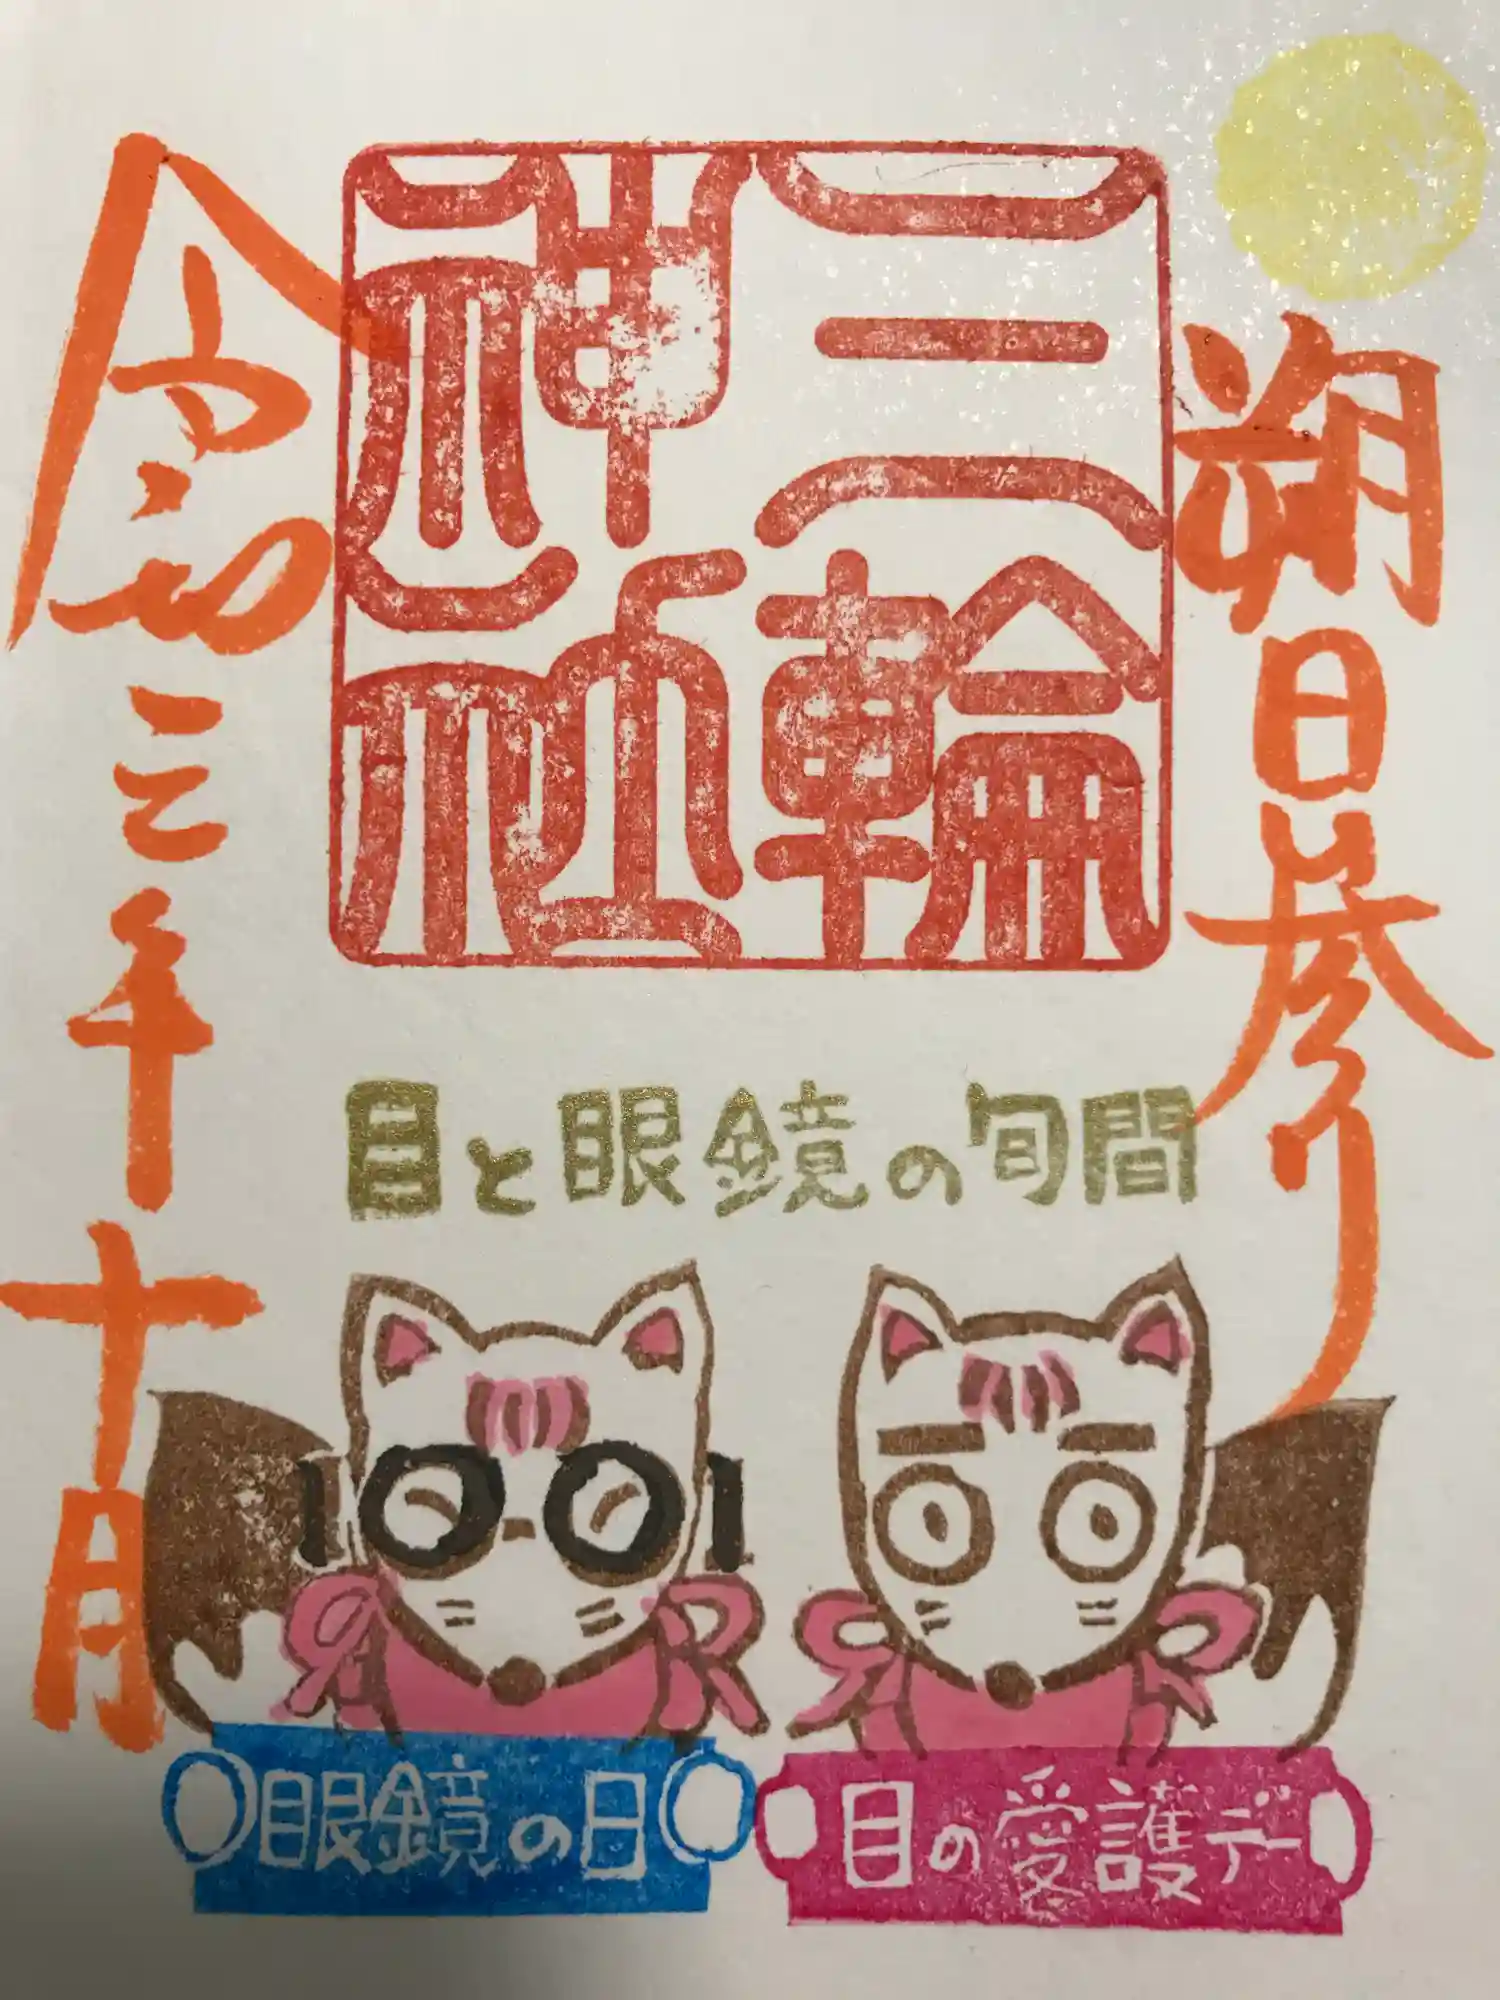 朔日参り
三輪神社
令和三年十月
目と眼鏡の旬間
眼鏡の日
目の愛護デー